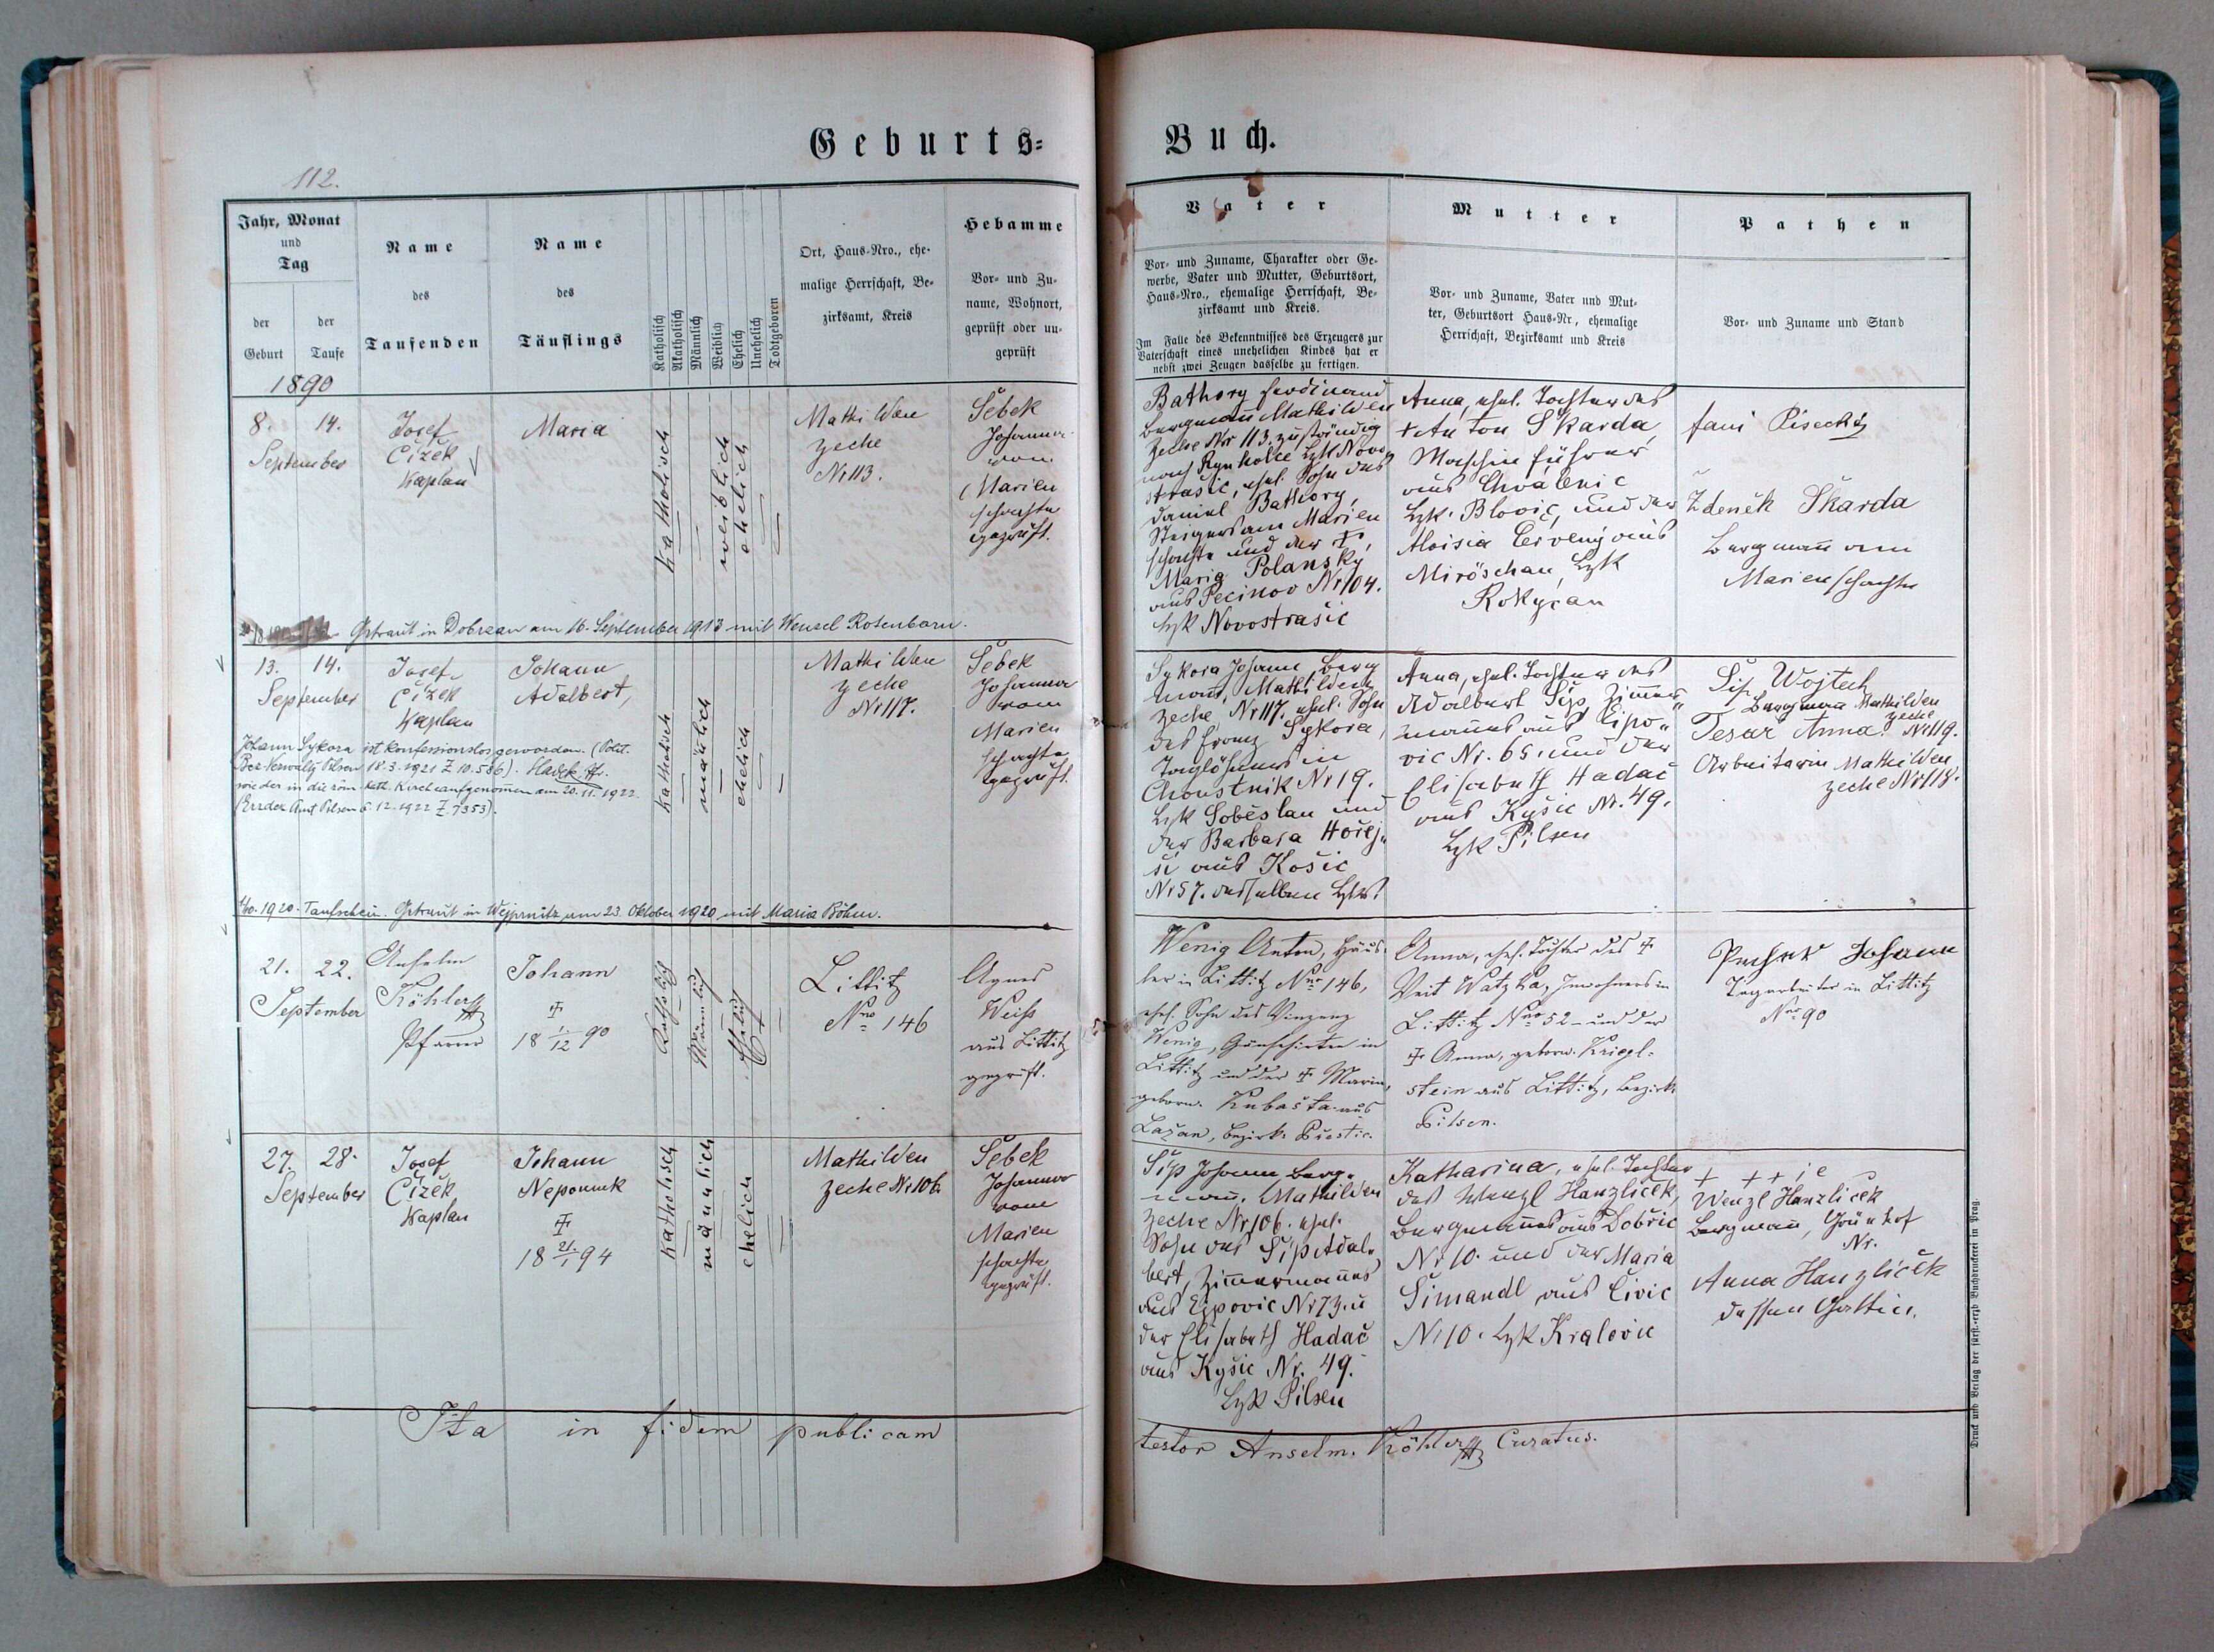 Geburts=
Buch.
112.
Jahr, Monat
und
Tag
der
Geburt
der
Taufe
Name
des
Taufenden
Name
des
Täuflings
Katholisch
Akatholisch
Männlich
Weiblich
Ehelich
Unehelich
Todtgeboren
Ort, Haus-Nro., ehe-
malige Herrschaft, Be-
zirksamt, Kreis
Hebamme
Vor- und Zu-
name, Wohnort,
geprüft oder un-
geprüft
Vater
Vor- und Zuname, Charakter oder Ge-
werbe, Vater und Mutter, Geburtsort,
Haus-Nro., ehemalige Herrschaft, Be-
zirksamt und Kreis.
Im Falle des Bekenntnisses des Erzeugers zur
Vaterschaft eines unehelichen Kindes hat er
nebst zwei Zeugen dasselbe zu fertigen.
Mutter
Vor- und Zuname, Vater und Mut-
ter, Geburtsort Haus-Nr, ehemalige
Herrschaft, Bezirksamt und Kreis
Pathen
Vor- und Zuname und Stand
1890
8. 14.
September
Josef
Čížek
Kaplan
Maria
katholisch
weiblich
ehelich
Mathilden
zeche
Nr 113.
Šebek
Johanna
vom
Marien
schachte
geprüft.
Bathory Ferdinand
Bergmann Mathilden
zeche Nr 113. zuständig
nach Rynholce Bzk Novo
strašic, ehel. Sohn des
Daniel Bathory,
Steigers am Marien
schachte und der †,
Maria Polansky
aus Pecinov Nr 104.
Bzk Novostrašic
Anna, ehel. Tochter des
+ Anton Škarda,
Maschinführer
aus Chválenic
Bzk. Blovic, und der
Aloisia Červený aus
Miröschau, Bzk
Rokycan
Fani Pisecký
Zdeněk Škarda
Bergmann am
Marienschachte
Getraut in Dobrzan am 16. September 1913 mit Wenzel Rosenbaru.
13. 14.
September
Josef
Čížek
Kaplan
Johann
Adalbert,
katholisch
mänlich
ehelich
Mathilden
zeche
Nr 117.
Šebek
Johanna
vom
Marien
schachte
geprüft.
Johann Sykora ist konfessionslos geworden. (Polit.
Bez. Verwaltg Pilsen 18.3.1921 Z 10.586).
wieder in die röm. kath. Kirche aufgenommen am 20. 11. 1922.
Amt Pilsen 6. 12. 1922 Z. 7353).
Sykora Johann, Berg
mann, Mathilden
zeche, Nr 117. ehel. Sohn
des Franz Sykora,
Taglöhners in
Choustnik Nr 19.
Bzk Soběslau und
der Barbara Hořej„
ši aus Košic
Nr 57. desselben Bzks
Anna, ehel. Tochter des
Adalbert Šip, Zimmer„
mannes aus Eipo„
vic Nr. 65. und der
Elisabeth Hadač
aus Kyšic Nr. 49.
Bzk Pilsen
Šip Wojtech
Bergman Mathilden
zeche
Nr 119.
Tesar Anna.
Arbeiterin Mathilden
zeche Nr 118.
1920. Taufschein. Getraut in Wejprnitz am 23. Oktober 1920 mit Maria Böhm.
21. 22.
September
Anselm
Köhler
Pfarrer
Johann
†
18 1./12 90
Katholisch
Männlich
Ehelich
Littitz
Nro 146
Agnes
Weiß
aus Littitz
geprüft.
Wenig Anton, Häus-
ler in Littitz Nro 146,
ehel. Sohn des Vinzenz
Wenig, Gänsehirten in
Littitz und der † Maria,
geborn. Kubašta aus
Lažan, Bezirk Přestic.
Anna, ehel. Tochter des †
Veit Watzka, Inwohners in
Littitz Nro 52 und der
† Anna, geborn. Kriegl-
stein aus Littitz, Bezirk
Pilsen.
Johann
Tagarbeiter in Littitz
Nro 90
27. 28.
September
Josef
Čížek
Kaplan
Johann
Nepomuk
†
18 21./1 94
katholisch
mänlich
ehelich
Mathilden
zeche Nr 106.
Šebek
Johanna
vom
Marien
schachte
geprüft.
Šip Johann, Berg„
mann, Mathilden
zeche Nr 106. ehel.
Sohn des Šip Adal„
bert, Zimmermannes
aus Ejpovic Nr 73. u
der Elisabeth Hadač
aus Kyšic Nr. 49.
Bzk Pilsen
Katharina, ehel. Tochter
des Wenzl Hanzliček,
Bergmannes aus Dobřic
Nr 10. und der Maria
Šimandl aus Čivic
Nr 10. Bzk Kralovic
+ + +
Wenzl Hanzliček
Bergmann, Grünhof
Nr.
Anna Hanzliček
dessen Gattin.
Ita in fidem publicam
testor Anselm. Köhler Curatus.
Druck und Verlag der fürst.-erzb Buchdruckerei in Prag.